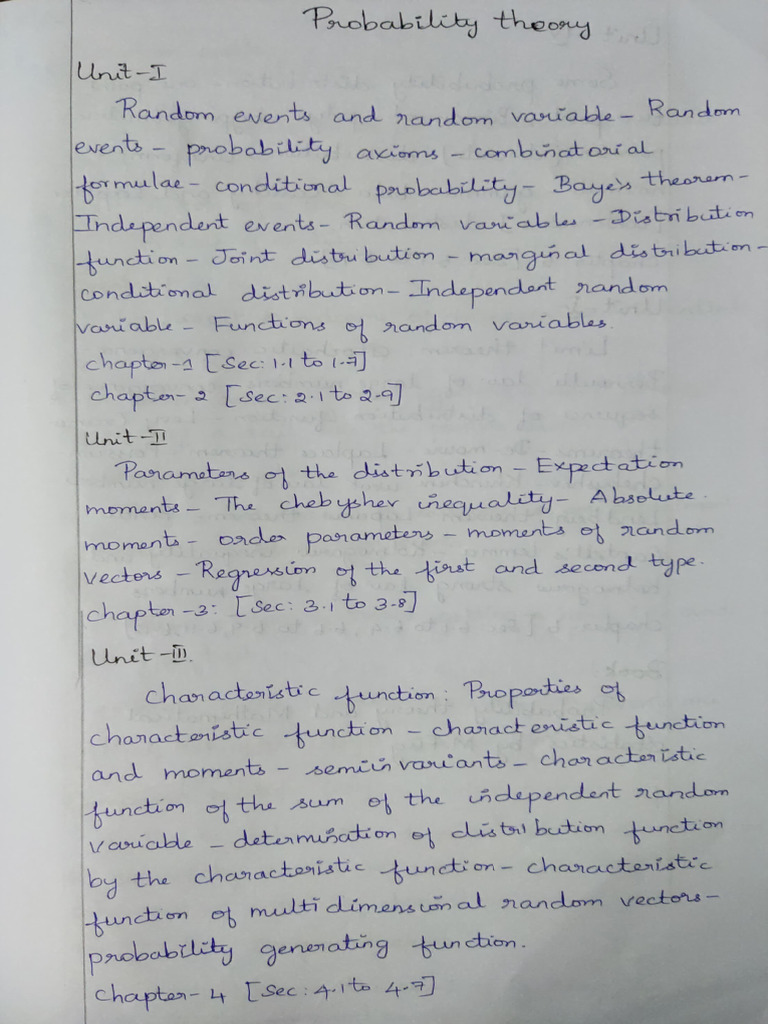 Probability theory
Unit-I
Random events and random variable - Random
events - probability axioms - combinatorial
formulae - conditional probability - Baye's theorem -
Independent events - Random variables - Distribution
function - Joint distribution - marginal distribution -
conditional distribution - Independent random
variable - Functions of random variables.
chapter-1 [Sec: 1.1 to 1.7]
chapter-2 [Sec: 2.1 to 2.9]
Unit-II
Parameters of the distribution - Expectation
moments - The chebyshev inequality - Absolute
moments - order parameters - moments of random
vectors - Regression of the first and second type.
chapter-3: [Sec: 3.1 to 3.8]
Unit-III.
Characteristic function: Properties of
characteristic function - characteristic function
and moments - semiinvariants - characteristic
function of the sum of the independent random
variable - determination of distribution function
by the characteristic function - characteristic
function of multidimensional random vectors -
probability generating function.
Chapter-4 [Sec: 4.1 to 4.7]